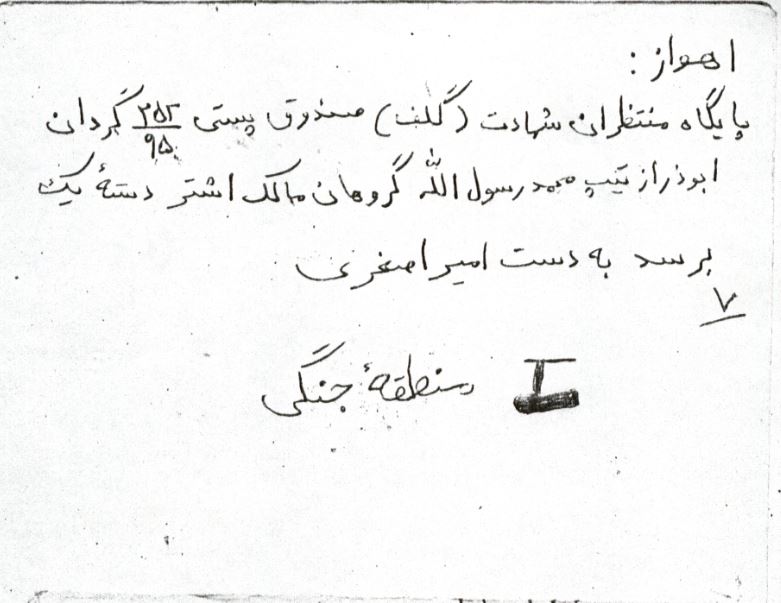 اهواز :
پایگاه منتظران شهادت (گلف) صندوق پستی ۲۵۲/۹۵ گردان
ابوذر از تیپ محمد رسول الله گروهان مالک اشتر دستهٔ یک
برسد به دست امیر اصغری
۷
منطقهٔ جنگی